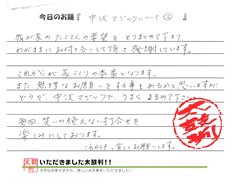 今日のお題『 中沢マジックについて② 』
我が家のたくさんの要望をとりまとめて下さり、
わがままにお付き合いして頂き感謝しています。
これからが家づくりの本番となります。
また無理なお願いをする事もあるかと思いますが
どうか中沢マジックで、うまくまとめて下さい。
毎回、笑いの絶えない打合せを
楽しみにしております。
これからも宜しくお願いします。
太鼓判
いただきました太鼓判!!